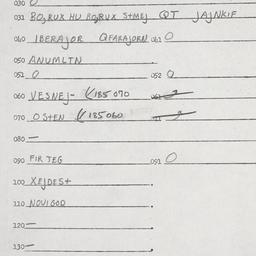 030 0
031 BOJRUX HU BOJRUX S+MEJ QT JAJNKIF
040 IBERAJOR QFARAJORN 041 0
050 ANUMLTN
051 0 052 0
060 VESNEJ- V185 070 061
070 OS+EN V185060
080 —
090 FIR TEG 091 0
100 XEJDES+
110 NOUIGOD
120 —
130 —